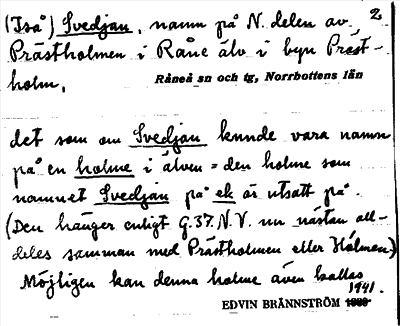 (Iså) Svedjan, namn på N. delen av 2
Prästholmen i Råne älv i byn Präst-
holm,
Råneå sn och tg, Norrbottens län
det som om Svedjan kunde vara namn
på en holme i älven = den holme som
namnet Svedjan på ek är utsatt på.
(Den hänger enligt G.37. N.V. nu nästan all-
deles samman med Prästholmen eller Holmen.)
Möjligen kan denna holme även kallas
1941.
EDVIN BRÄNNSTRÖM